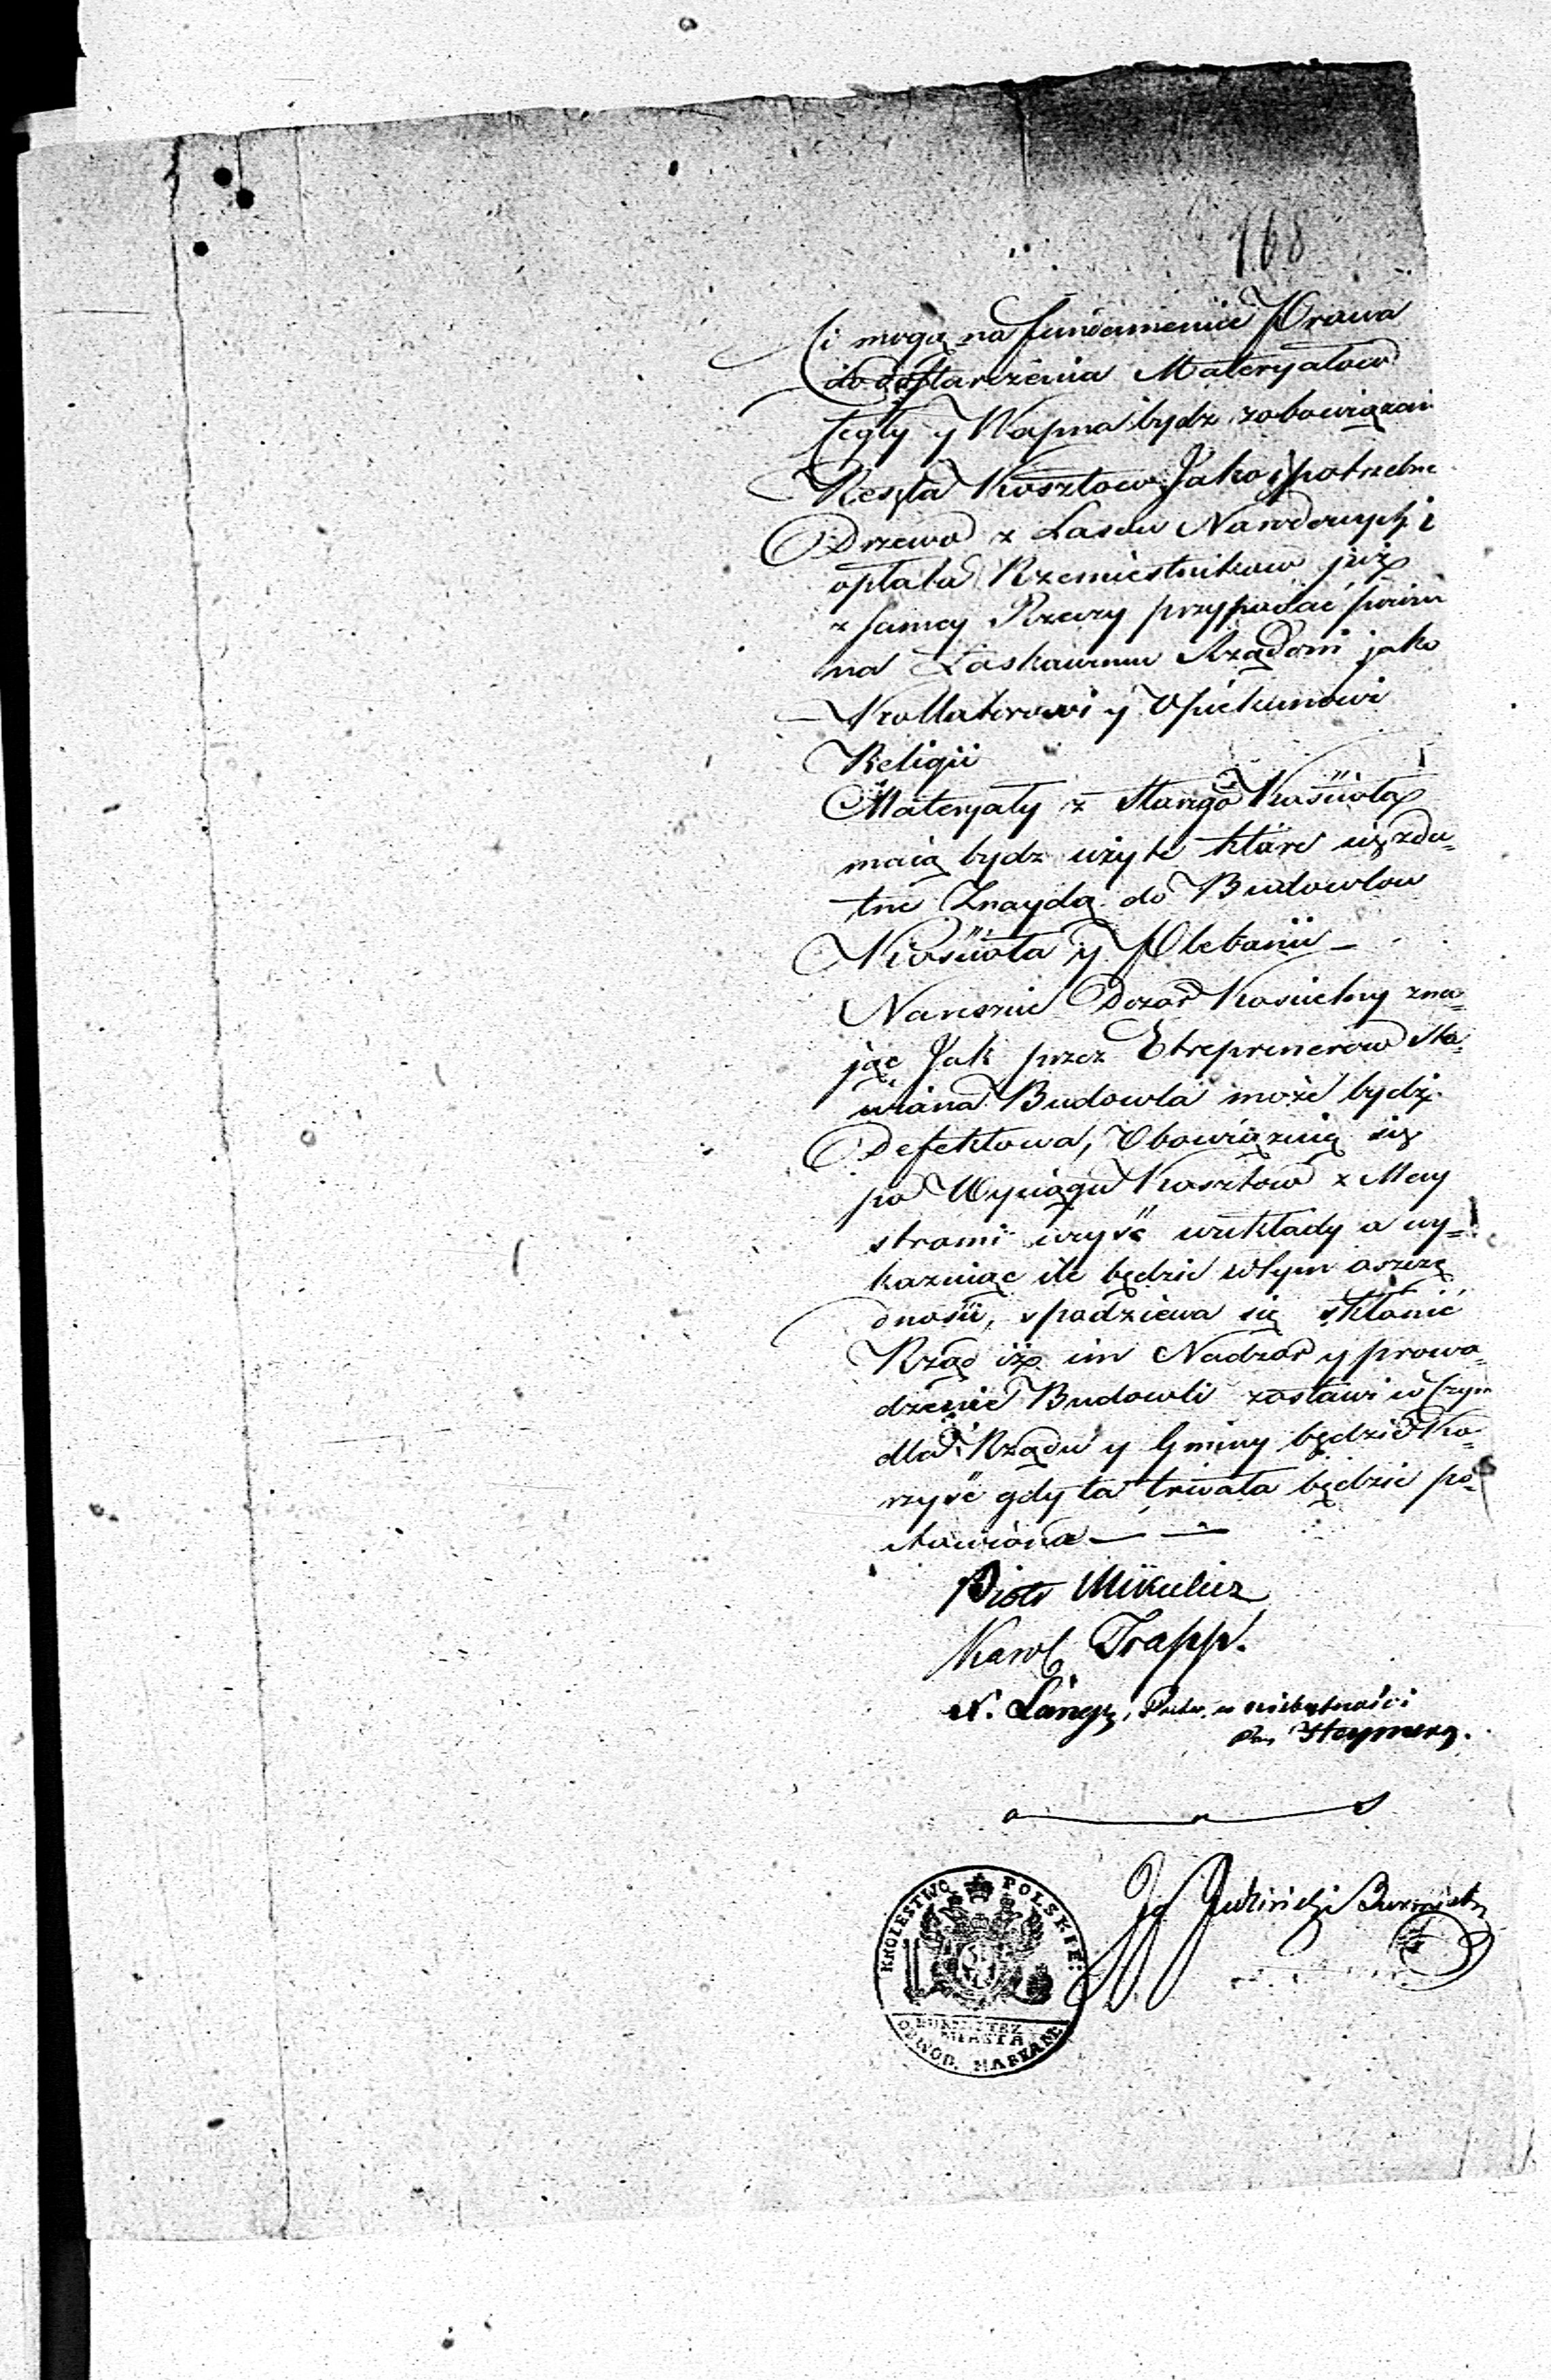 168
Ci mogą na fundamencie Prawa
do dostarczenia Materyałow
Cegły y Wapna bydz zobowiązani
Reszta Kosztow Jako i potrzebne
Drzewo z Lasow Narodowych i
opłata Rzemieslnikow już
z samey Rzeczy przypadać powin
na Łaskawemu Rządowi jako
Kollatorowi y Opiekunowi
Religii
Materyały z Starego Kościoła
maią bydz użyte które się zda-
tne Znaydą do Budowlow
Kościoła y Plebanii —
Nareszcie Dozor Koscielny zna-
jąc Jak przez Etreprenerow sta-
wiana Budowla może bydź
Defektowa, Obowiązuią się
po Wyciągu Kosztow z May
strami wzyść wukłady a wy-
kazuiąc ile będzie wtym oszczę
dnosci, spodziewa się skłonić
Rząd iż im Nadzor y prowa-
dzenie Budowli zostawi w Czym
dla Rządu y Gminy będzie Ko-
rzyść gdy ta trwała będzie po-
stawiona —
Piotr Mikulicz
Karol Trapp.
N. Lange, w niebytności
Heymera.
Burmistrz
KROLESTWO POLSKIE.
BURMISTRZ
MIASTA
OBWOD.